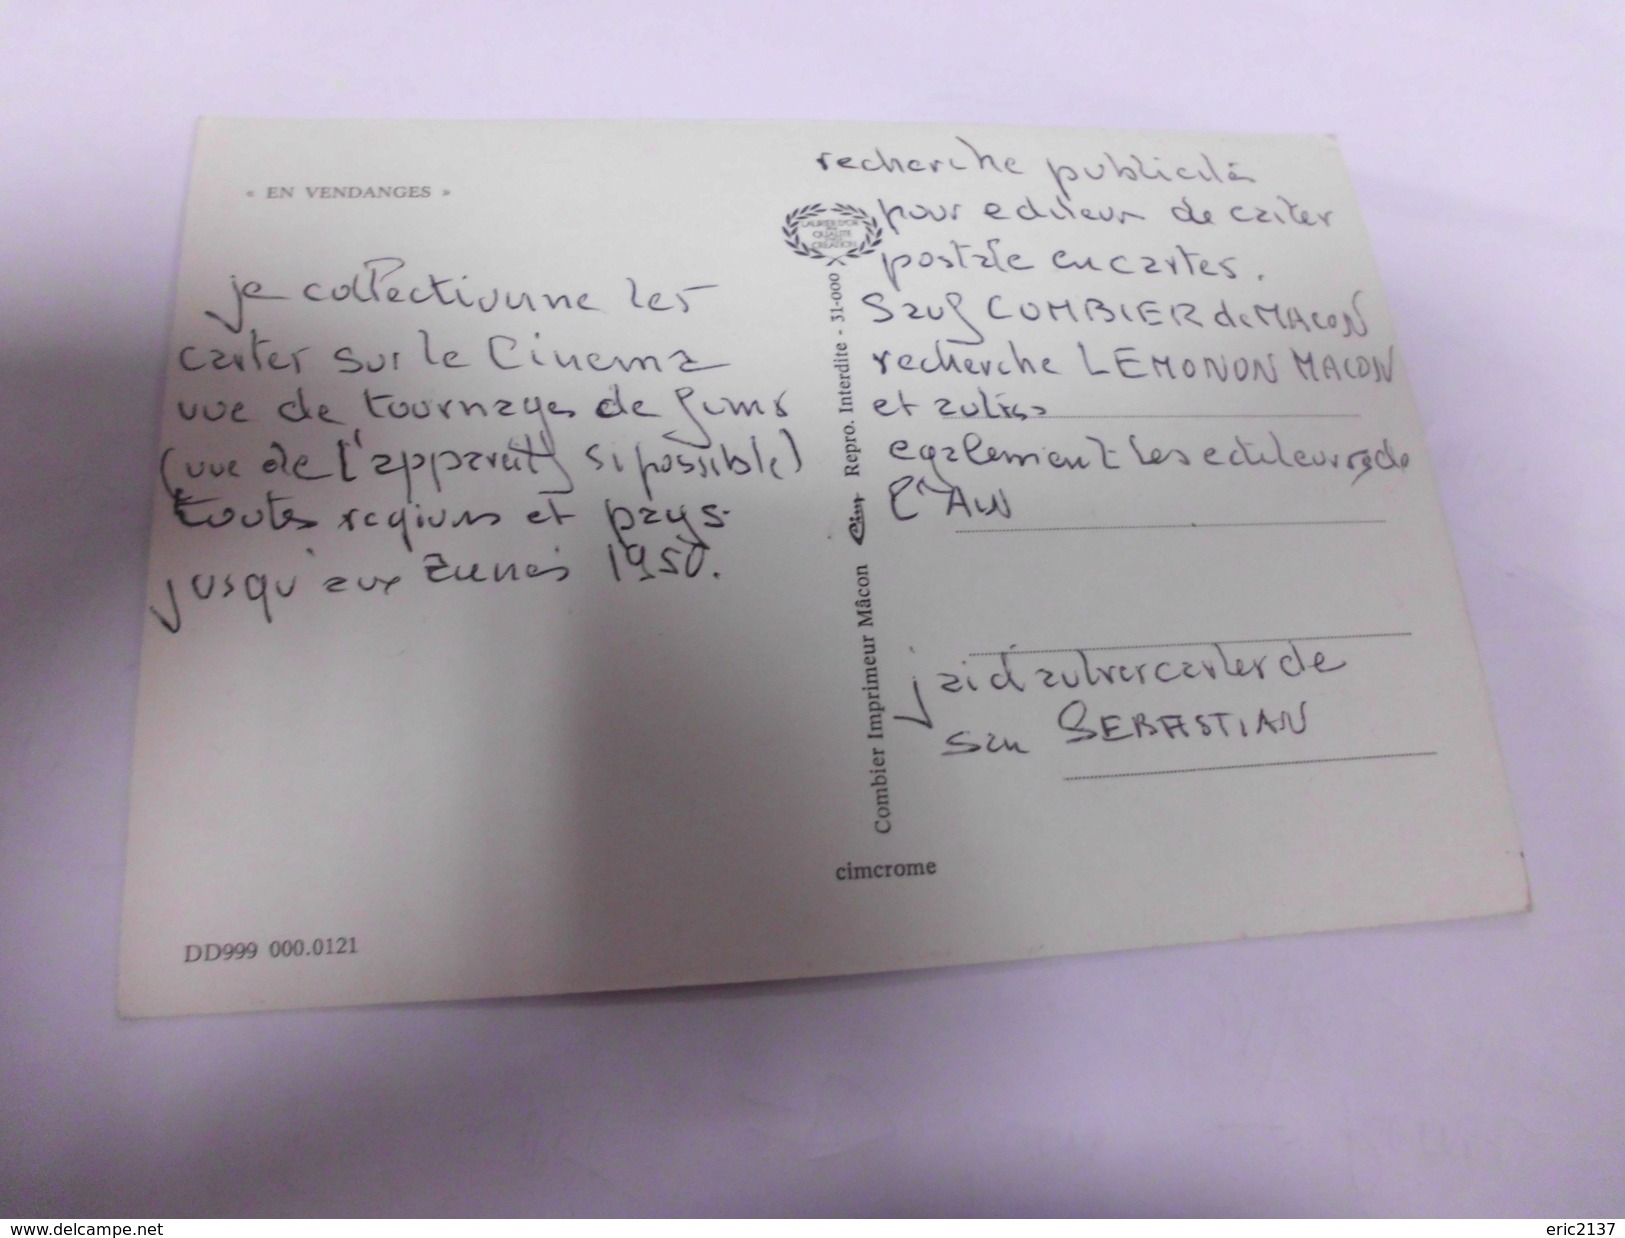 « EN VENDANGES »
je collectionne les
cartes sur le Cinema
vue de tournages de films
(vue de l'appareil si possible)
toutes regions et pays.
jusqu'aux années 1950.
DD999 000.0121
LAURIER D'OR
QUALITE
CREATION
Combier Imprimeur Mâcon Cim Repro. Interdite - 31-000
cimcrome
recherche publicité
pour editeur de cartes
postale en cartes.
Sauf COMBIER de MACON
recherche LEMONON MACON
et autres
egalement les editeurs de
l'AIN
j'ai d'autres cartes de
san SEBASTIAN
www.delcampe.net
eric2137